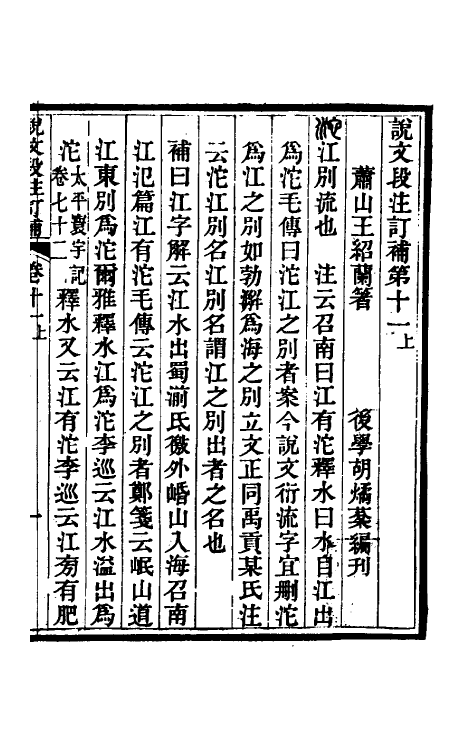 說文段注訂補第十一上
蕭山王紹蘭著 後學胡燏棻編刊
沱江別流也 注云召南曰江有沱釋水曰水自江出
爲沱毛傳曰沱江之別者案今說文衍流字宜刪沱
爲江之別如勃澥爲海之別立文正同禹貢某氏注
云沱江別名江別名謂江之別出者之名也
補曰江字解云江水出蜀湔氐徼外崏山入海召南
江氾篇江有沱毛傳云沱江之別者鄭箋云岷山道
江東別爲沱爾雅釋水江爲沱李巡云江水溢出爲
沱太平寰宇記卷七十二釋水又云江有沱李巡云江㫄有肥
說文段注訂補 卷十一上 一